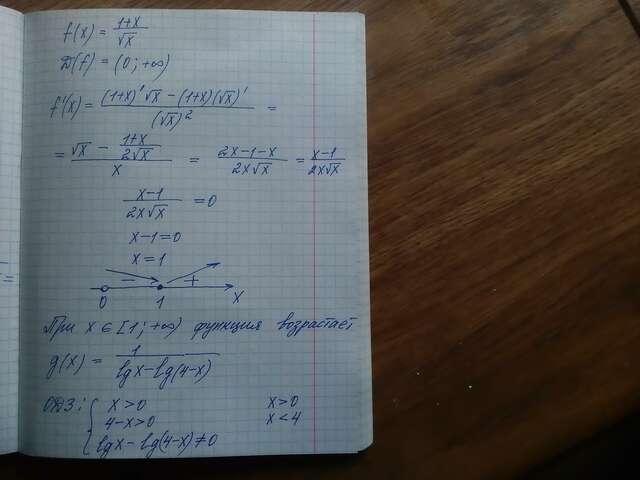 f(x) = (1+x)/√x
D(f) = (0; +∞)
f'(x) = ((1+x)'√x − (1+x)(√x)')/(√x)² =
= (√x − (1+x)/(2√x))/x = (2x−1−x)/(2x√x) = (x−1)/(2x√x)
(x−1)/(2x√x) = 0
x−1=0
x=1
− +
0 1 x
При x ∈ [1; +∞) функция возрастает
g(x) = 1/(lgx−lg(4−x))
ОДЗ: { x>0 x>0
4−x>0 x<4
lgx − lg(4−x) ≠ 0
=